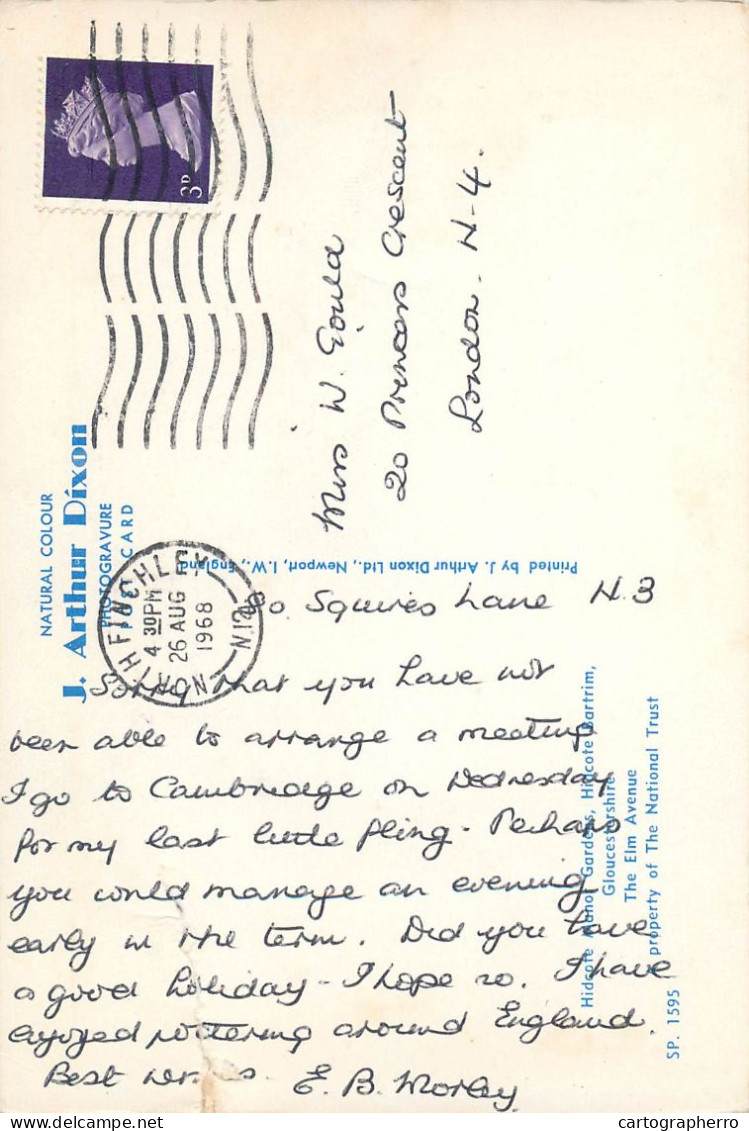 3D
NATURAL COLOUR
J. Arthur Dixon
PHOTOGRAVURE
POSTCARD
NORTH FINCHLEY
4 30PM
26 AUG
1968
N.12
Miss W. Gould
20 Princess Crescent
London. N-4.
Printed by J. Arthur Dixon Ltd., Newport, I.W., England
90. Squires Lane N.3
Sorry that you have not
been able to arrange a meeting
I go to Cambridge on Wednesday
for my last little fling. Perhaps
you could manage an evening
early in the term. Did you have
a good holiday - I hope so. I have
enjoyed pottering around England.
Best E. B. Morley
Hidcote Manor Gardens, Hidcote Bartrim,
Gloucestershire
The Elm Avenue
property of The National Trust
SP. 1595
cartographerro